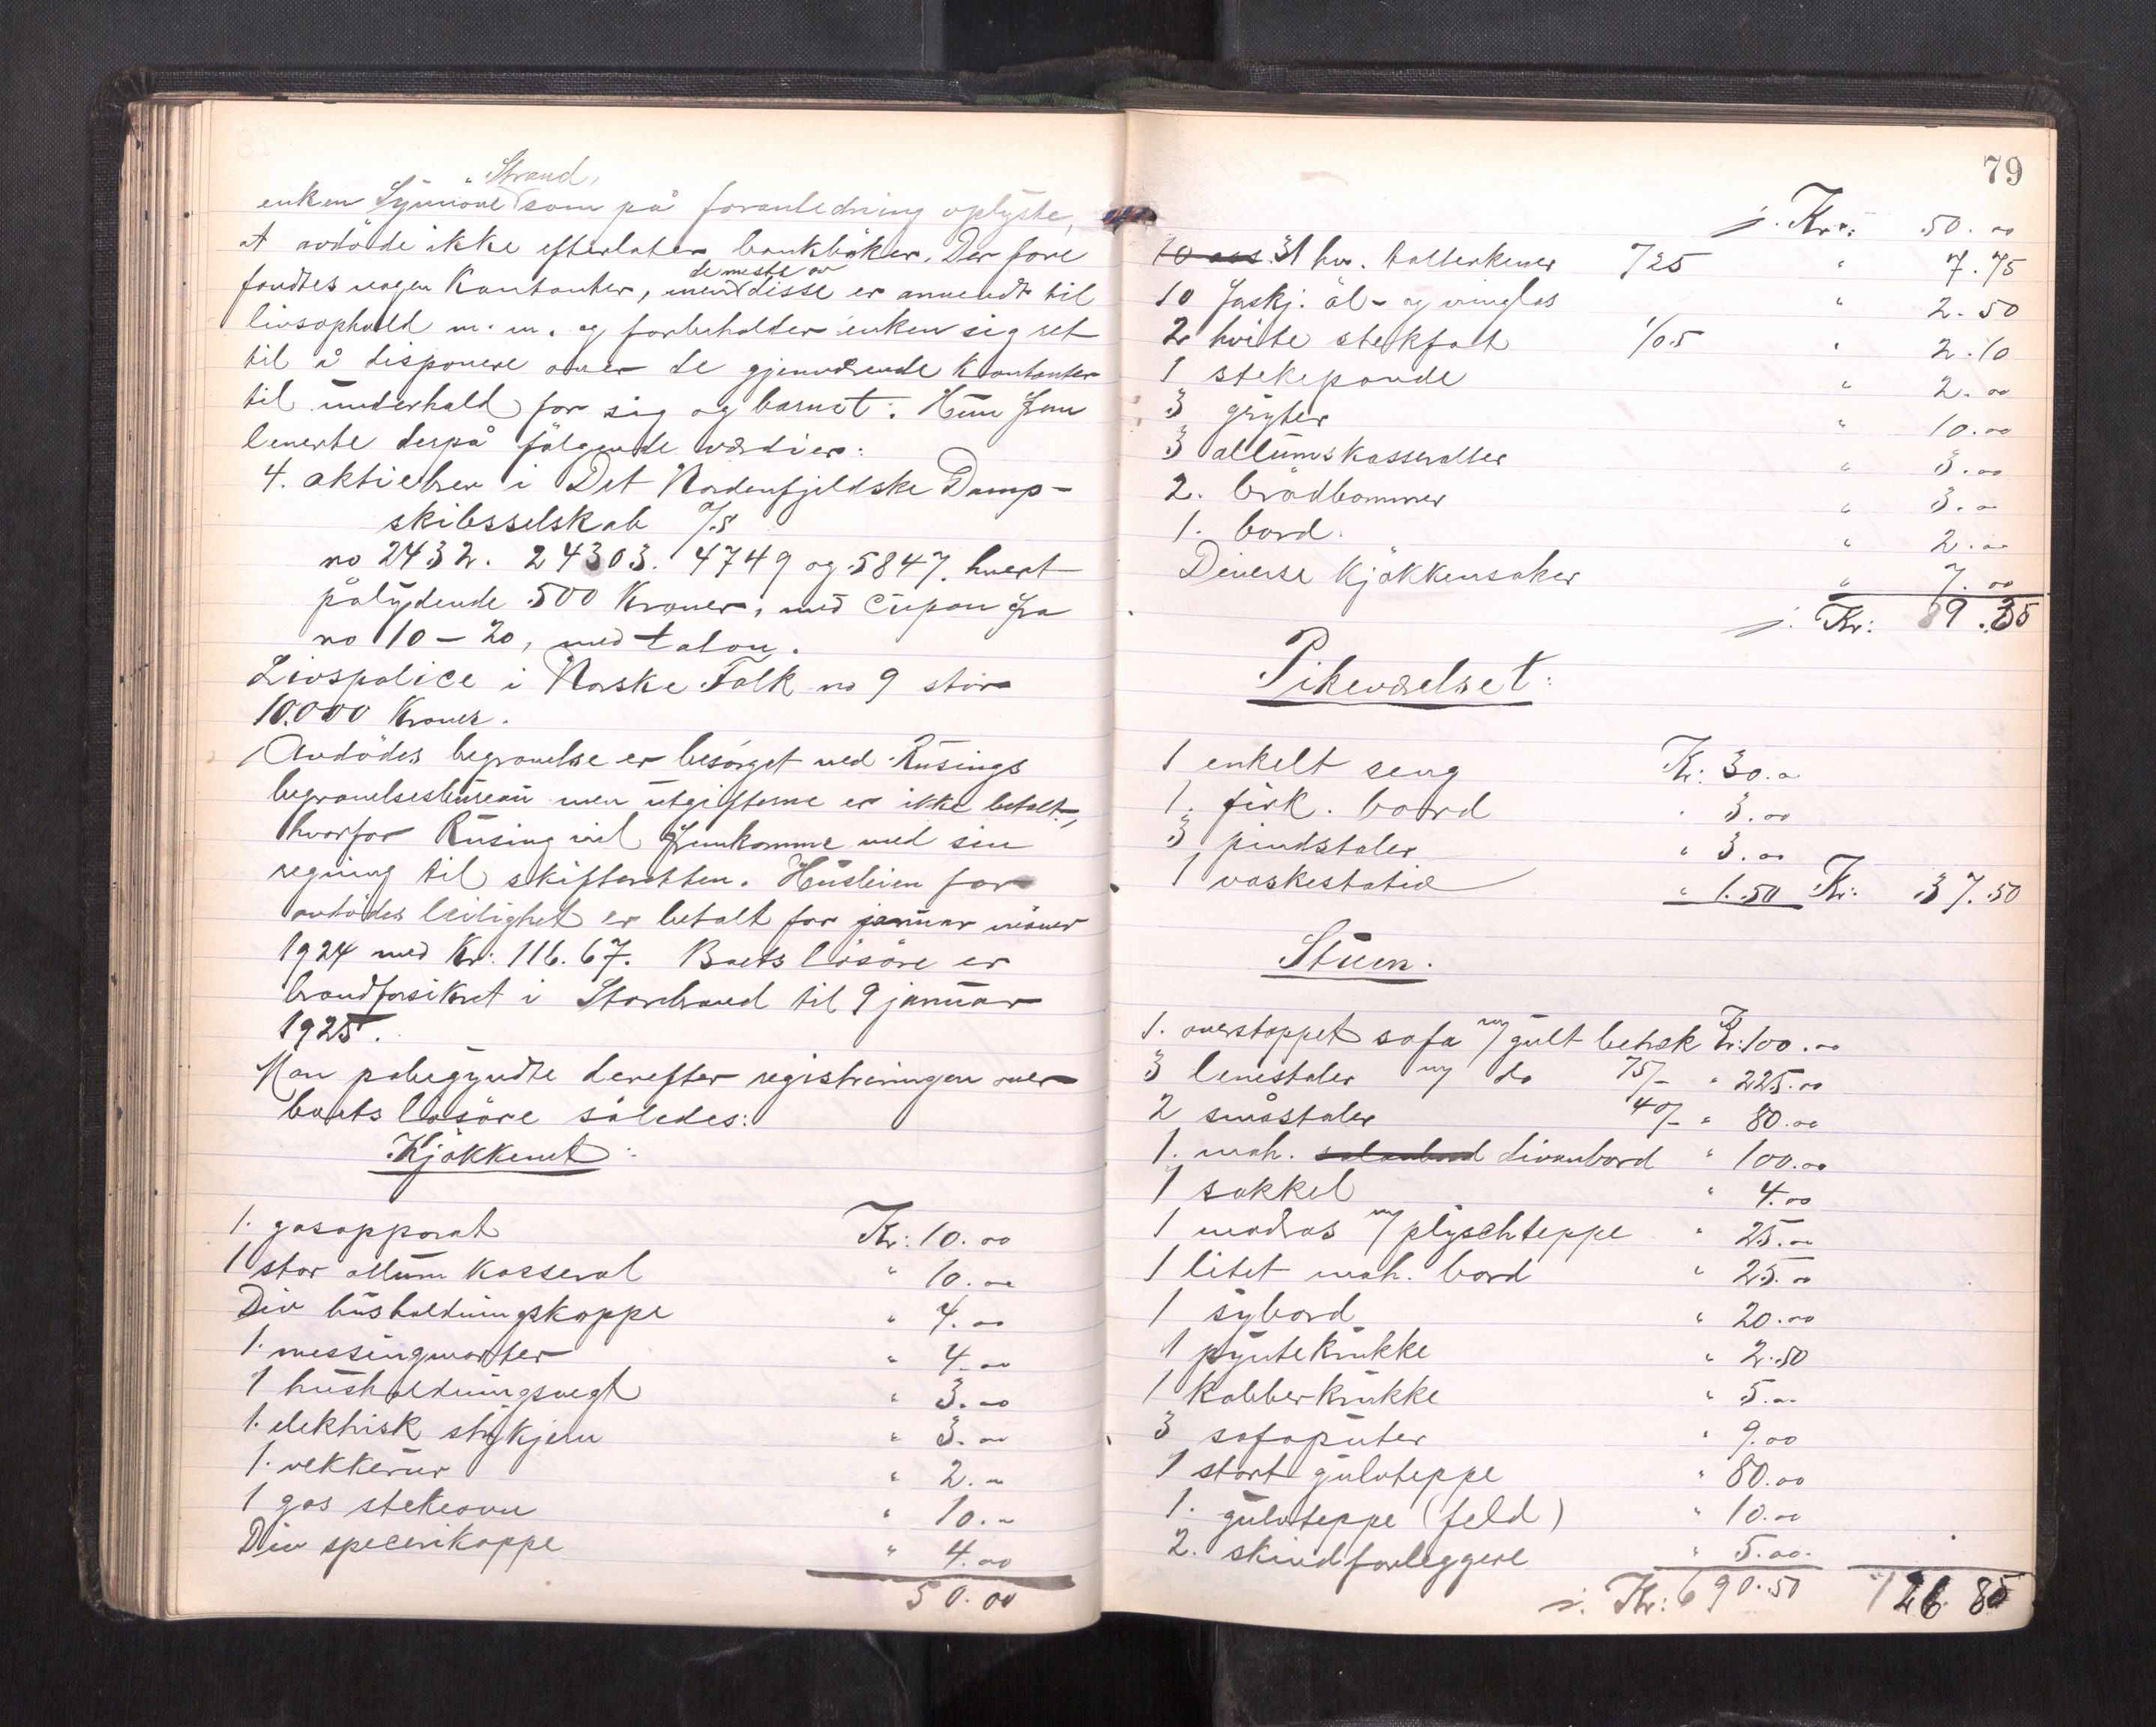 Strand,
enken Synnöve som på foranledning oplyste,
at avdöde ikke efterlater bankböker. Der fore
de meste av
fandtes nogen Kontanter, men disse er anvendt til
livsophold m.m. og forbeholder enken sig ret
til å disponere over de gjenværende Kontanter
til underhold for sig og barnet. Hun frem
leverte derpå fölgende værdier:
4. aktiebrev i Det Nordenfjeldske Damp-
skibsselskab A/S
no 2432. 24303. 4749 og 5847. hvert
pålydende 500 Kroner, med Cupon fra
no 10-20, med talon.
Livspolice i Norske Folk no 9 stor
10.000 Kroner.
Avdödes begravelse er besörget ved Rusings
begravelsesbureau men utgifterne er ikke betalt,
hvorfor Rusing vil fremkomme med sin
regning til skifteretten. Husleien for
avdödes leilighet er betalt for januar måner
1924 med Kr: 116.67. Boets lösöre er
brandforsikret i Storebrand til 9 januar
1925.
Man påbegyndte derefter registreringen over
boets lösöre således:
Kjökkenet:
1. gasapparat Kr: 10.00
1 stor allum Kasserol " 10.00
Div husholdningskoppe " 4.00
1. messingmorter " 4.00
1 husholdningsvegt " 3.00
1. elektrisk strykjern " 3.00
1. vekkerur " 2.00
1 gas stekeovn " 10.00
Div specerikoppe " 4.00
50.00
79
j. Kr: 50.00
31 hv. tallerkener 7/25 " 7.75
10 Forskj. öl- og vinglas " 2.50
2 hvite stekfat 1/05 " 2.10
1 stekepande " 2.00
3 gryter " 10.00
3 allumskasseroller " 3.00
2. brödbommer " 3.00
1. bord. " 2.00
Diverse Kjökkensaker " 7.00
j. Kr: 89.35
Pikeværelset:
1 enkelt seng Kr: 30.00
1. firk. bord " 3.00
3 pindstoler " 3.00
1 vaskestativ " 1.50 Kr: 37.50
Stuen.
1. overstoppet sofa m/ gult betræk Kr: 100.00
3 lenestoler m/ do 75/- " 225.00
2 småstoler 40/- " 80.00
1. mah. divanbord " 100.00
1 sokkel " 4.00
1 madras m/ plyschteppe " 25.00
1 litet mah. bord " 25.00
1 sybord " 20.00
1 pyntekrukke " 2.50
1 kobberkrukke " 5.00
3 sofaputer " 9.00
1 stort gulvteppe " 80.00
1. gulvteppe (feld) " 10.00
2. skindforleggere " 5.00
j. Kr: 690.50 126 85